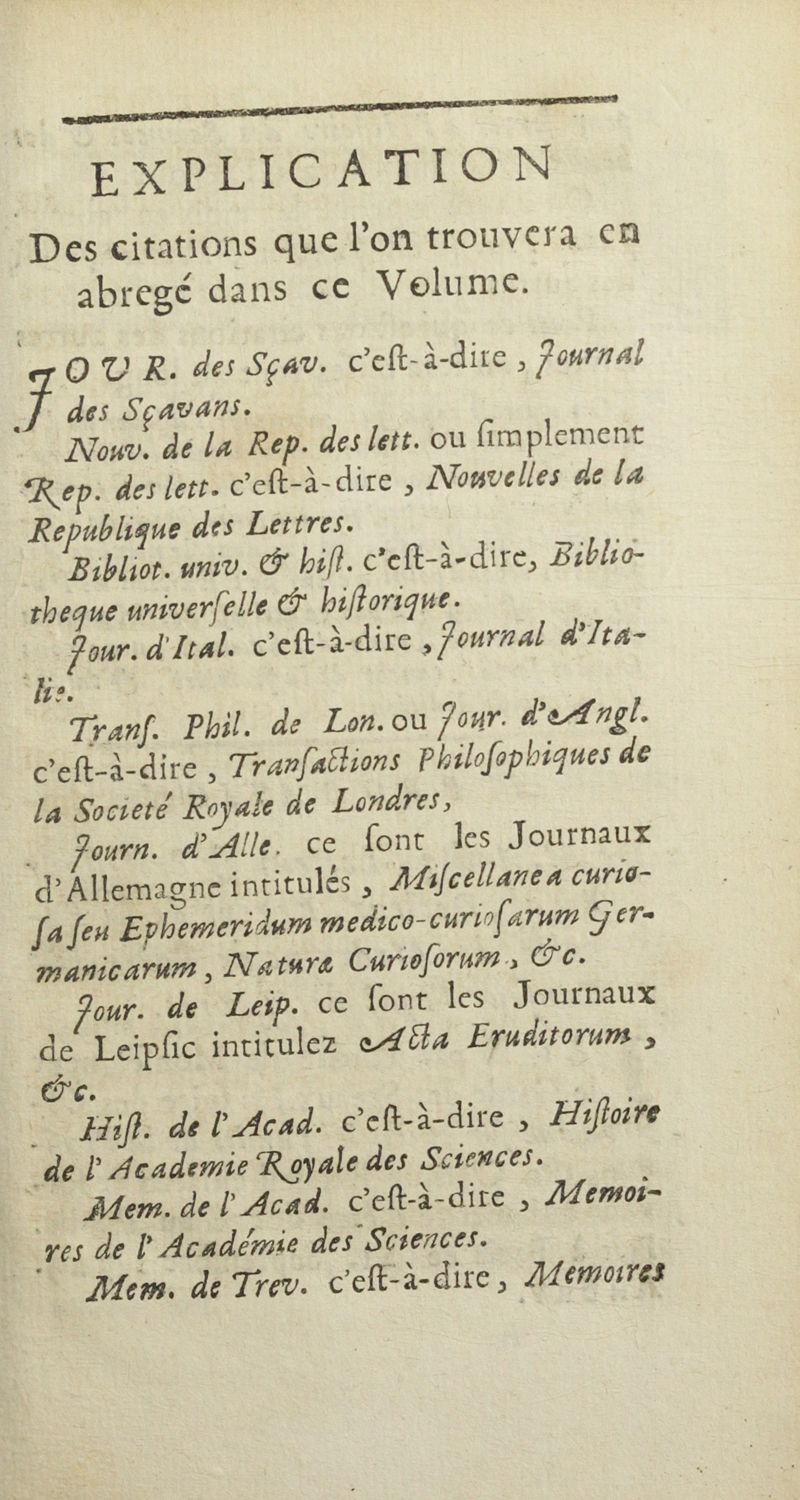 EXPLICATION
Des citations que l'on trouvera en
abregé dans ce Volume.
JOUR. des Sçav. c'eſt-à-dire, Journal
des Sçavans.
Nouv. de la Rep. des lett. ou ſimplement
Rep. des lett. c'eſt-à-dire, Nouvelles de la
Republique des Lettres.
Bibliot. univ. & hiſt. c'eſt-à-dire, Biblio-
theque univerſelle & hiſtorique.
Jour. d'Ital. c'eſt-à-dire, Journal d'Ita-
lie.
Tranſ. Phil. de Lon. ou Jour. d'Angl.
c'eſt-à-dire, Tranſactions Philoſophiques de
la Societé Royale de Londres,
Journ. d'Alle. ce ſont les Journaux
d'Allemagne intitulés, Miſcellanea curio-
ſa ſeu Ephemeridum medico-curioſarum Ger-
manicarum, Naturæ Curioſorum, &c.
Jour. de Leip. ce ſont les Journaux
de Leipſic intitulez Acta Eruditorum,
&c.
Hiſt. de l'Acad. c'eſt-à-dire, Hiſtoire
de l'Academie Royale des Sciences.
Mem. de l'Acad. c'eſt-à-dire, Memoi-
res de l'Académie des Sciences.
Mem. de Trev. c'eſt-à-dire, Memoires